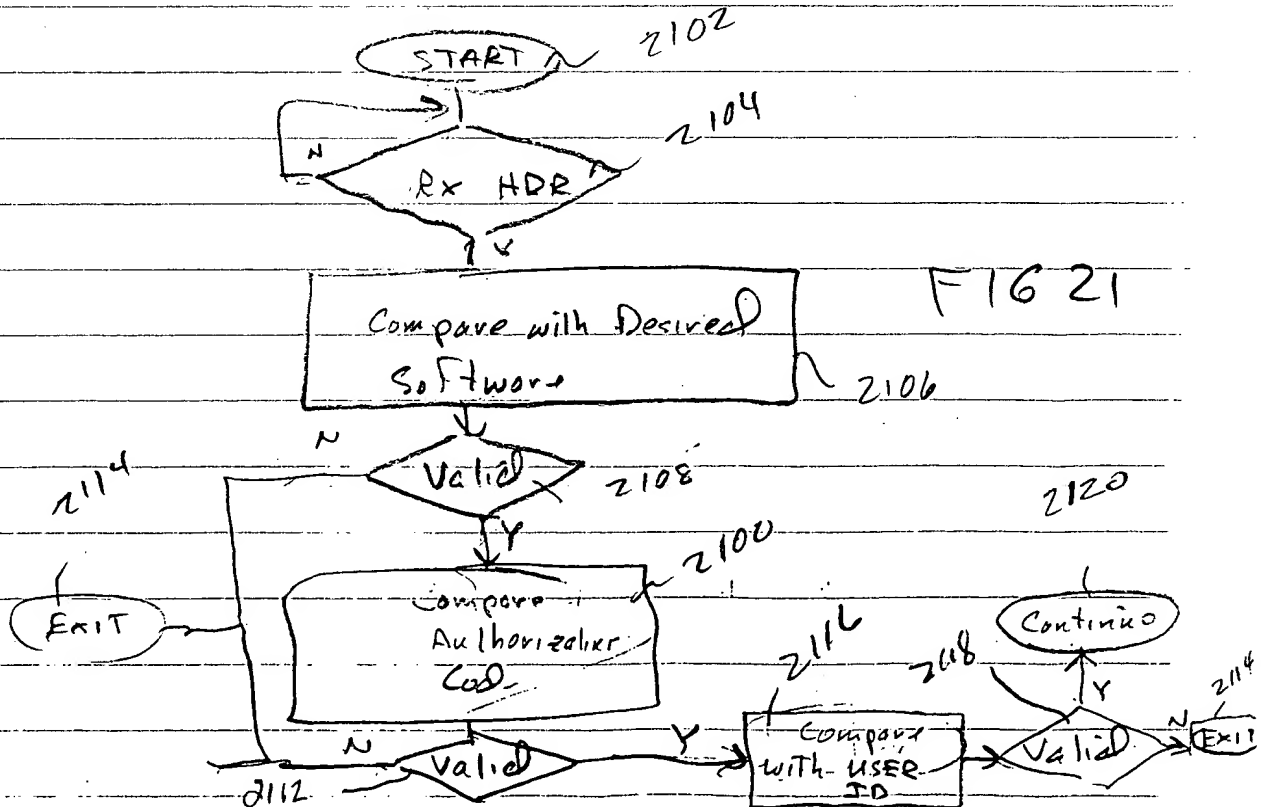 START
2102
2104
N
Rx HDR
Y
FIG 21
Compare with Desired
Software
2106
N
2114
Valid
2108
2120
Y
2100
EXIT
Compare
Authorization
Code
Continue
2116
2118
Y
2114
N
Valid
Y
Compare
with USER
ID
Valid
N
EXIT
2112